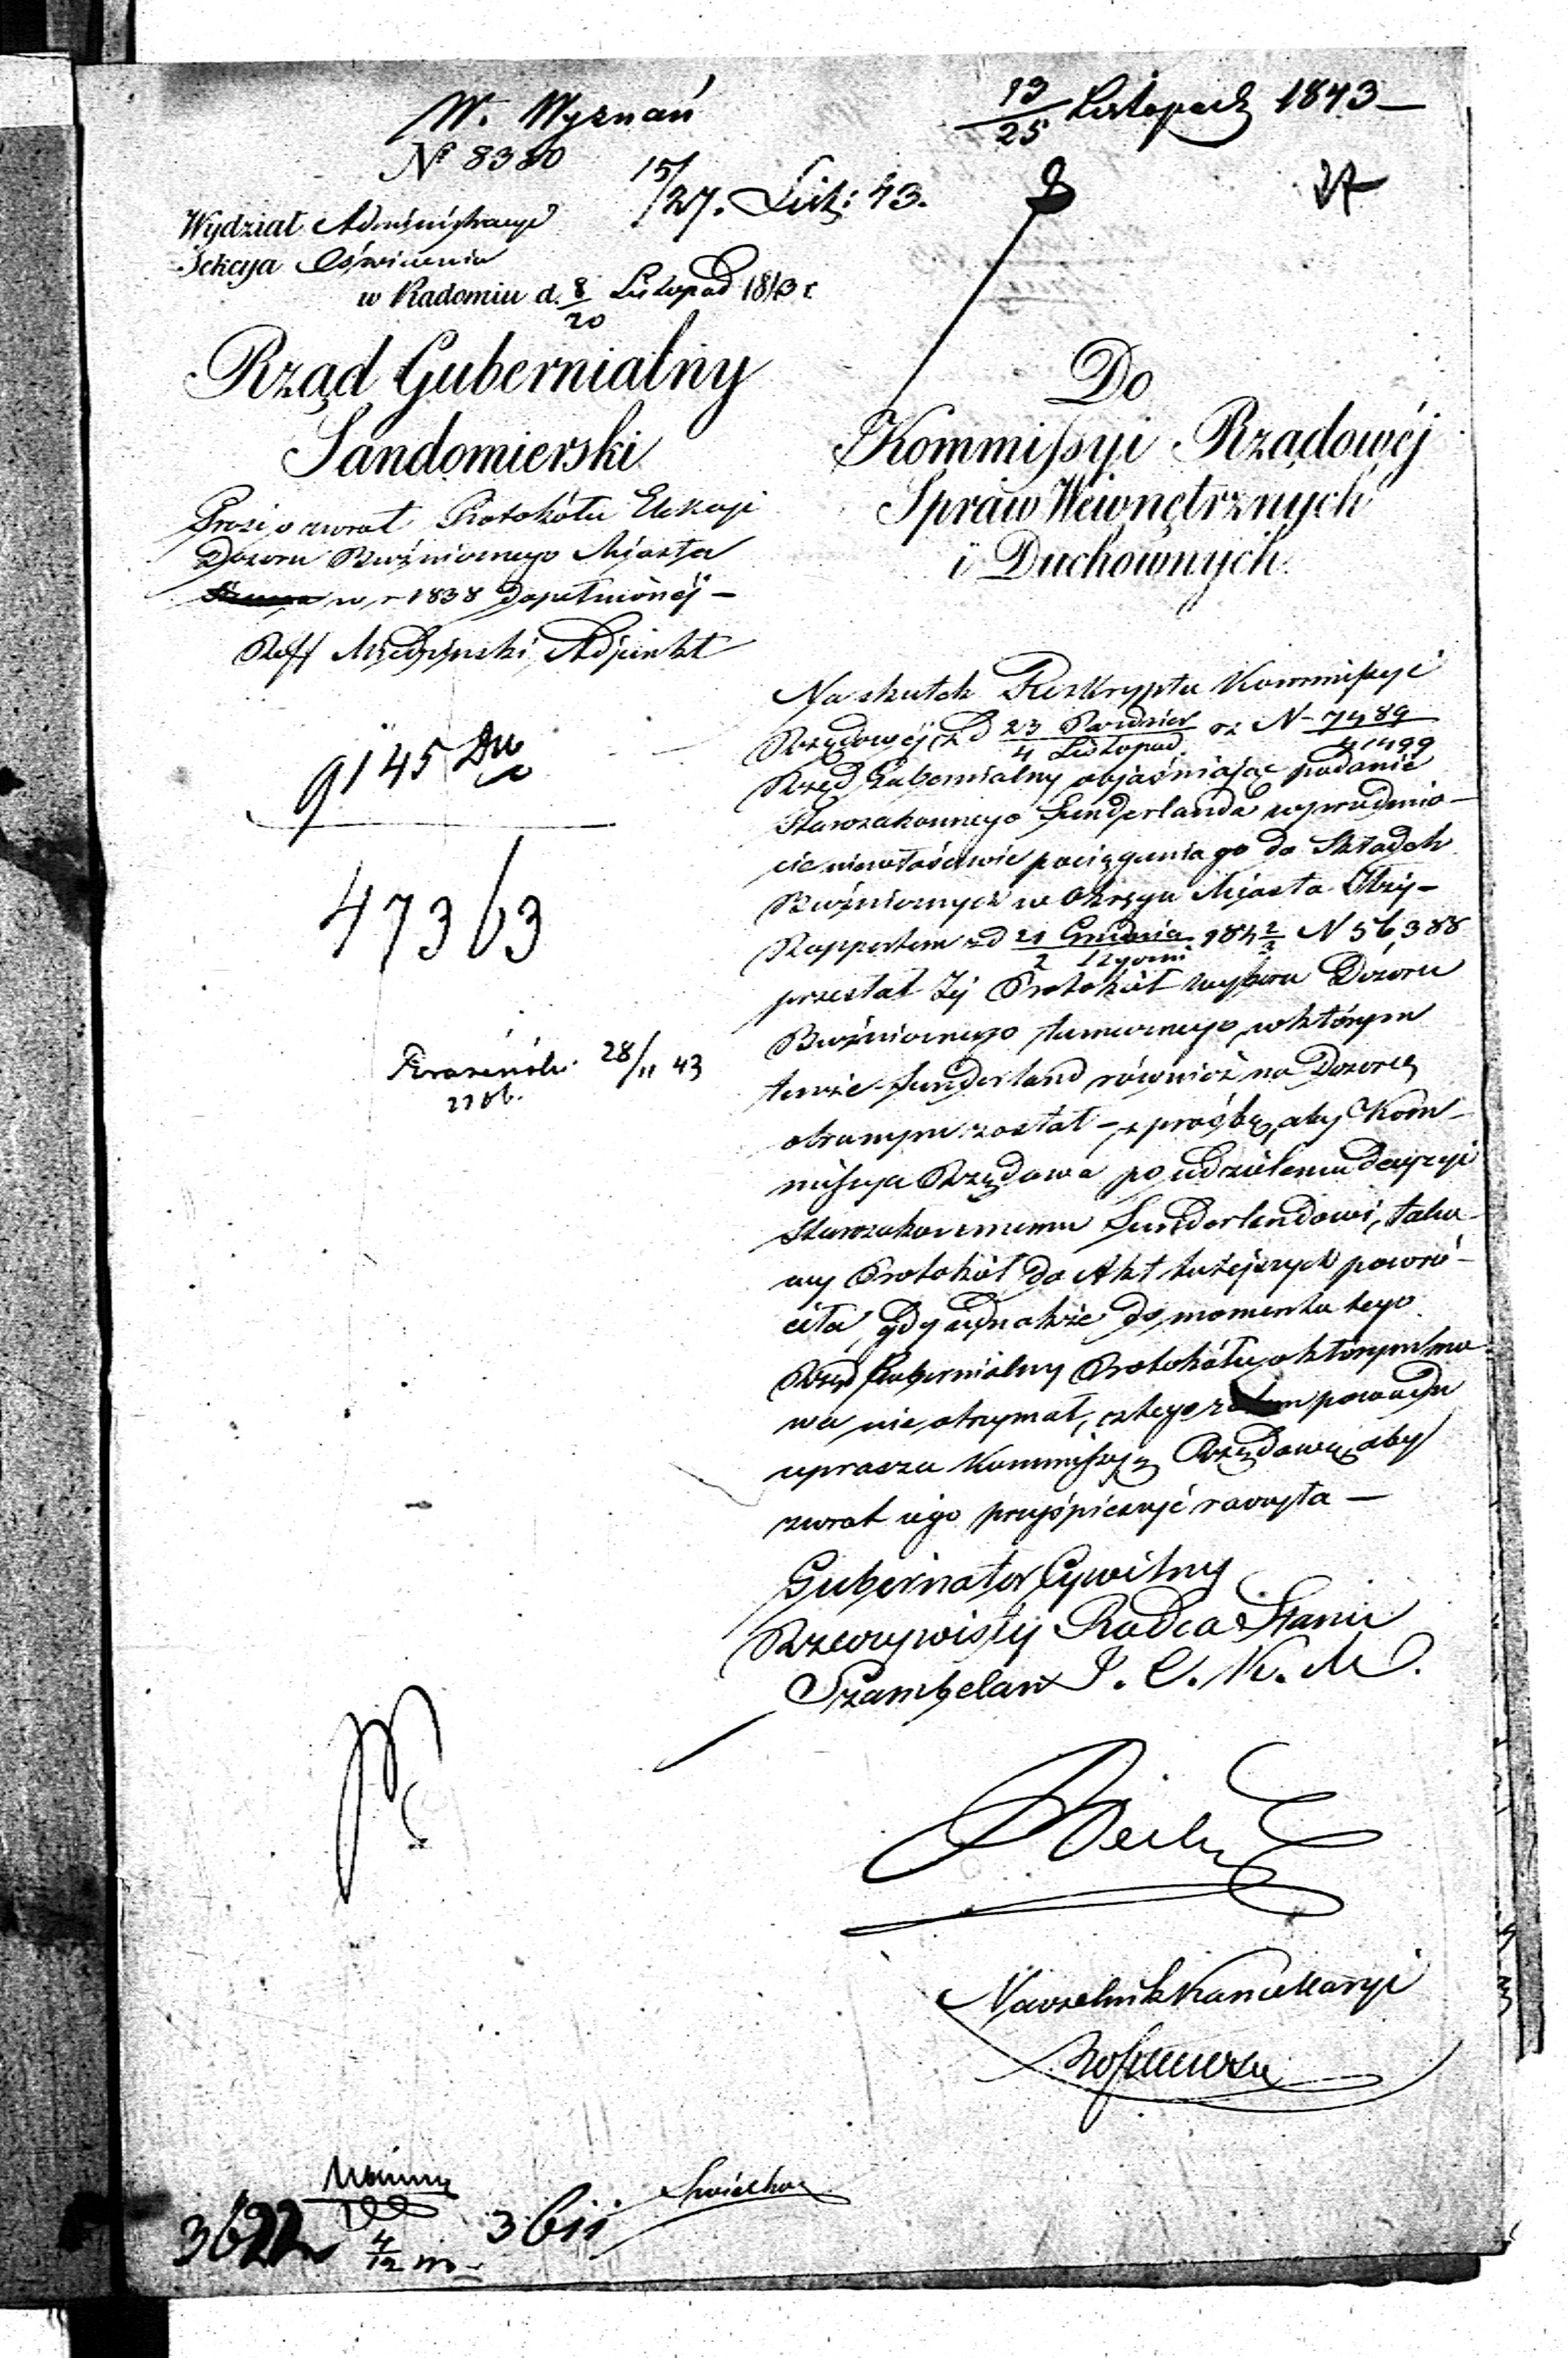 W. Wyznań
13/25 Listopada 1843
№ 8380
15/27. List: 43.
27
Wydział Administracyi
Sekcya Oświecenia
w Radomiu d. 8/20 Listopad 1843 r.
Rząd Gubernialny
Sandomierski
Prosi o zwrot Protokółu Elekcyi
Dozoru Bóżnicznego Miasta
w r 1838 dopełnionéj —
Reff Adjunkt
9145
47363
28/11 43
Do
Kommissyi Rządowéj
Spraw Wewnętrznych
i Duchownych.
Na skutek Reskryptu Kommissyi
Rządowéj z d 23 Paździer / 4 Listopad. za N 7489 /
Rząd Gubernialny objaśniając podanie
Starozakonnego Sunderlanda względnio-
cie niewłaściwie pociągania go do Składek
Bóżnicznych w Okręgu Miasta Iłży —
Rapportem z d 21 Grudnia / 2 Stycznia 184 2/3 N 56,388
przesłał Jéj Protokół wyboru Dozoru
Bóżnicznego tamecznego, w którym
tenże Sunderland również na Dozorcę
obranym został — z prośbą, aby Kom-
missya Rządowa po udzieleniu decyzyi
Starozakonnemu Sunderlandowi, tako-
wy Protokół do Akt tutejszych powró-
ciła, gdy jednakże do momentu tego
Rząd Gubernialny Protokółu o którym mo-
wa nie otrzymał, z tego zatem powodu
uprasza Kommissyą Rządową, aby
zwrot jego przyśpieszyć raczyła —
Gubernator Cywilny
Rzeczywisty Radca Stanu
Szambelan J. C. K. M.
Białoskórski
Naczelnik Kancellaryi
3622
4/12 m
3611